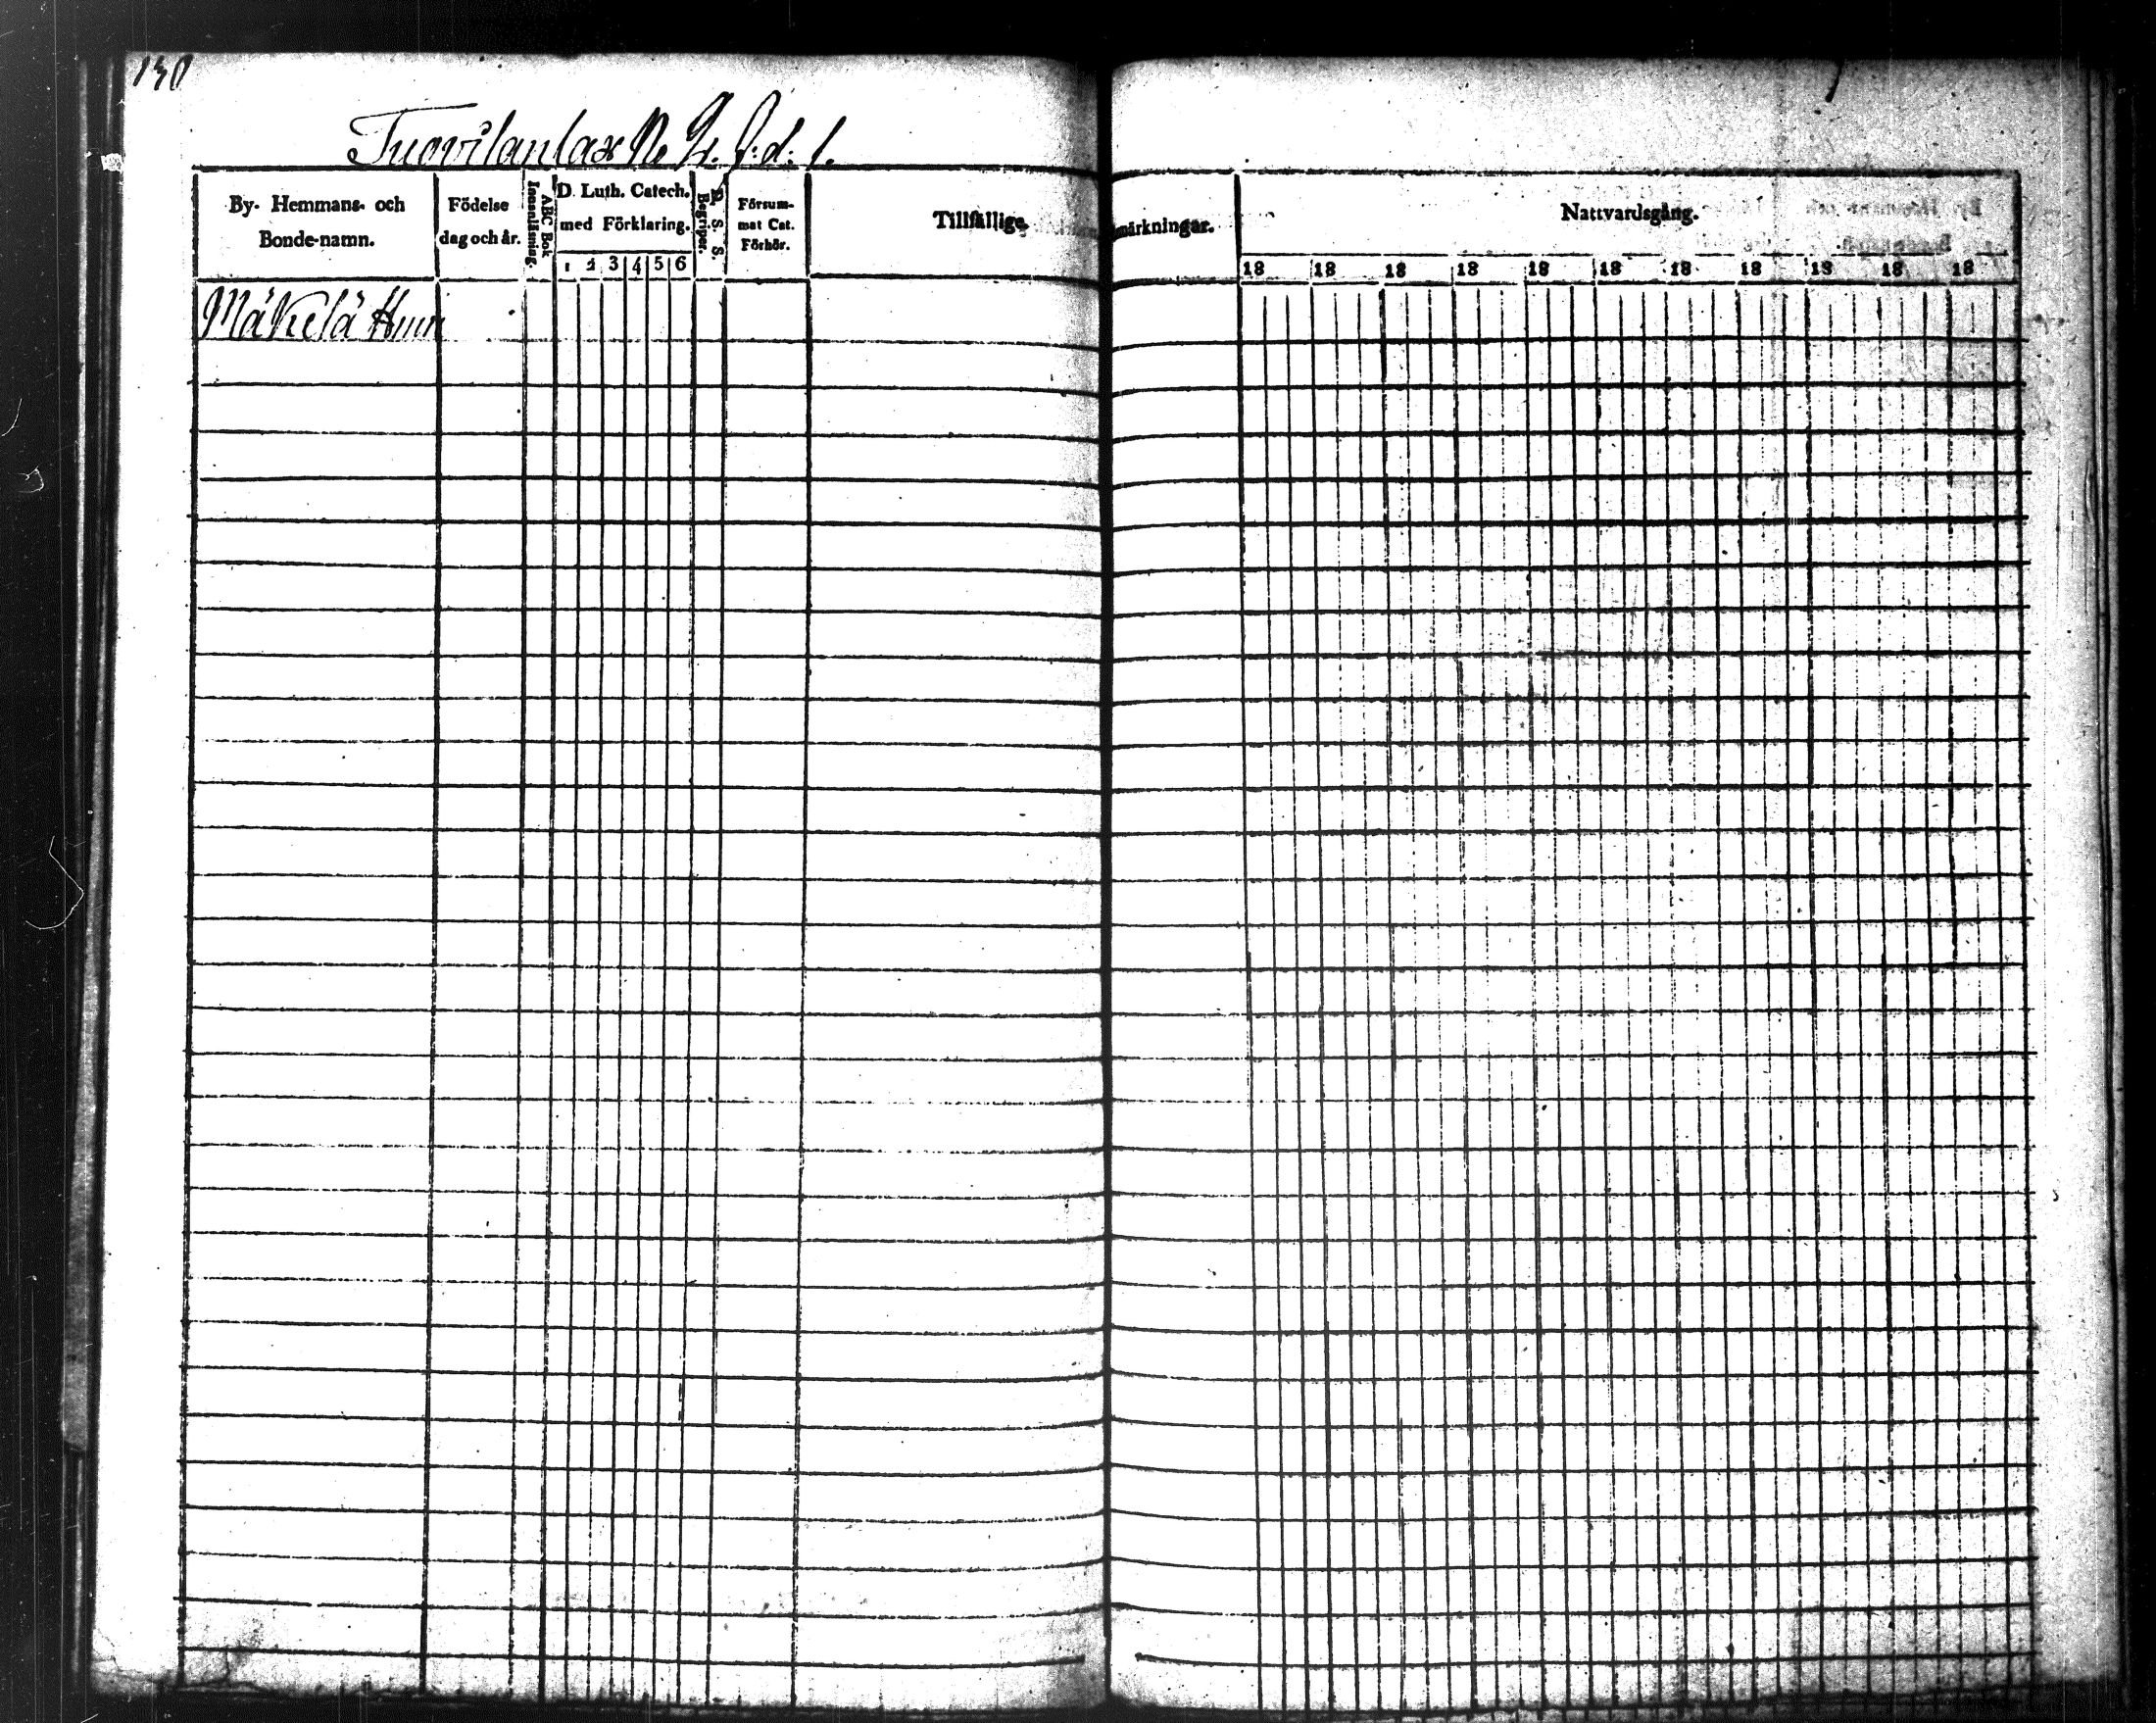 130
Tuovilanlax No 2. J:d: 1.
By- Hemmans- och Bonde-namn.
Födelse dag och år.
ABC Bok
Innanläsning.
D. Luth. Catech. med Förklaring.
1 2 3 4 5 6
D. S. S.
Begriper.
Försum-
mat Cat.
Förhör.
Tillfällige
märkningar.
Nattvardsgång.
18 18 18 18 18 18 18 18 18 18 18
Mäkelä